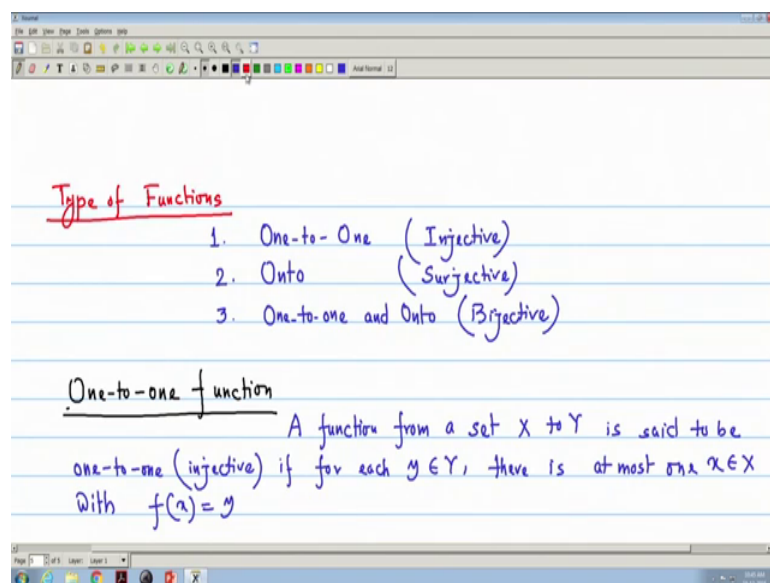 Journal
File Edit View Page Tools Options Help
Arial Normal 12
Type of Functions
1. One-to-One (Injective)
2. Onto (Surjective)
3. One-to-one and Onto (Bijective)
One-to-one function
A function from a set X to Y is said to be
one-to-one (injective) if for each y ∈ Y, there is at most one x ∈ X
With f(x) = y
Page 5 of 5 Layer: Layer 1